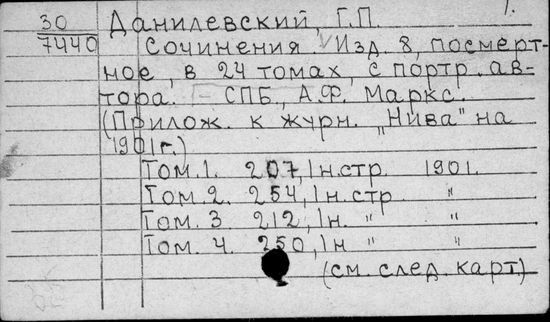 30 Данилевский, Г.П. 1.
7440 Сочинения Изд. 8, посмерт-
ное, в 24 томах, с портр. ав-
тора. – СПБ., А.Ф. Маркс.
(Прилож. к журн. „Нива" на
1901 г.)
Том. 1. 207, 1 н. стр. 1901.
Том. 2. 254, 1 н. стр. "
Том. 3 212, 1 н. " "
Том. 4. 250, 1 н " "
(см. след. карт)